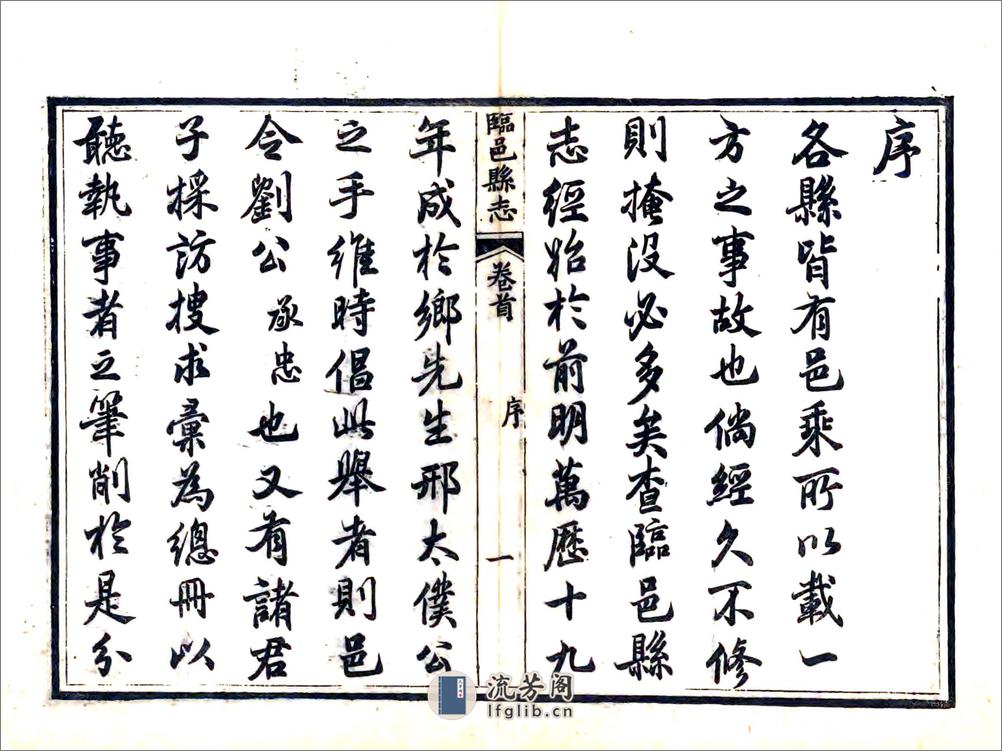 序
各縣皆有邑乘所以載一
方之事故也倘經久不修
則掩沒必多矣查臨邑縣
志經始於前明萬歷十九
臨邑縣志 卷首 序 一
年成於鄉先生邢太僕公
之手維時倡此舉者則邑
令劉公承忠也又有諸君
子採訪搜求彙為總冊以
聽執事者之筆削於是分
流芳阁
lfglib.cn